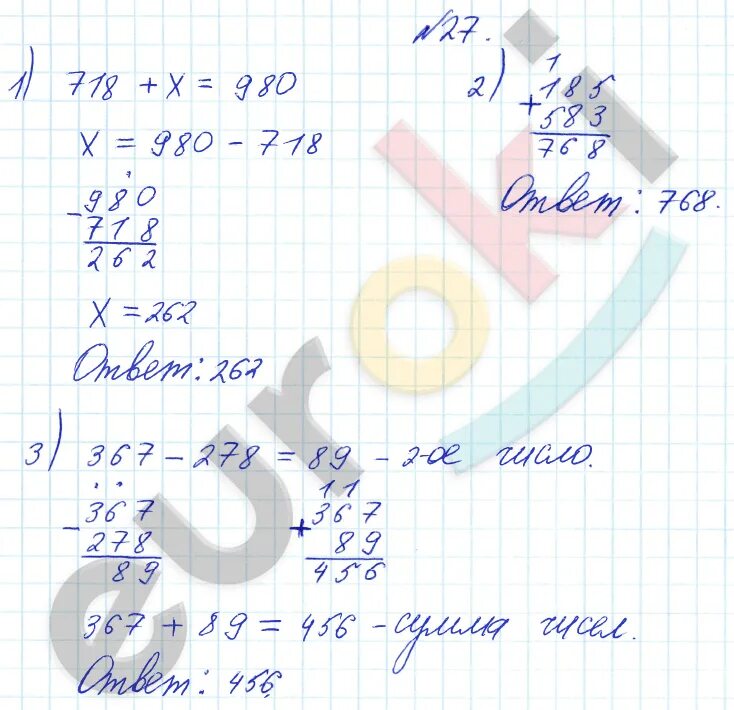 №27.
1) 718 + x = 980
x = 980 - 718
- 980
718
262
x = 262
Ответ: 262
2) 1
+ 185
583
768
Ответ: 768.
3) 367 - 278 = 89 - 2-ое число.
- 367
278
89
11
+ 367
89
456
367 + 89 = 456 - сумма чисел.
Ответ: 456
euroki